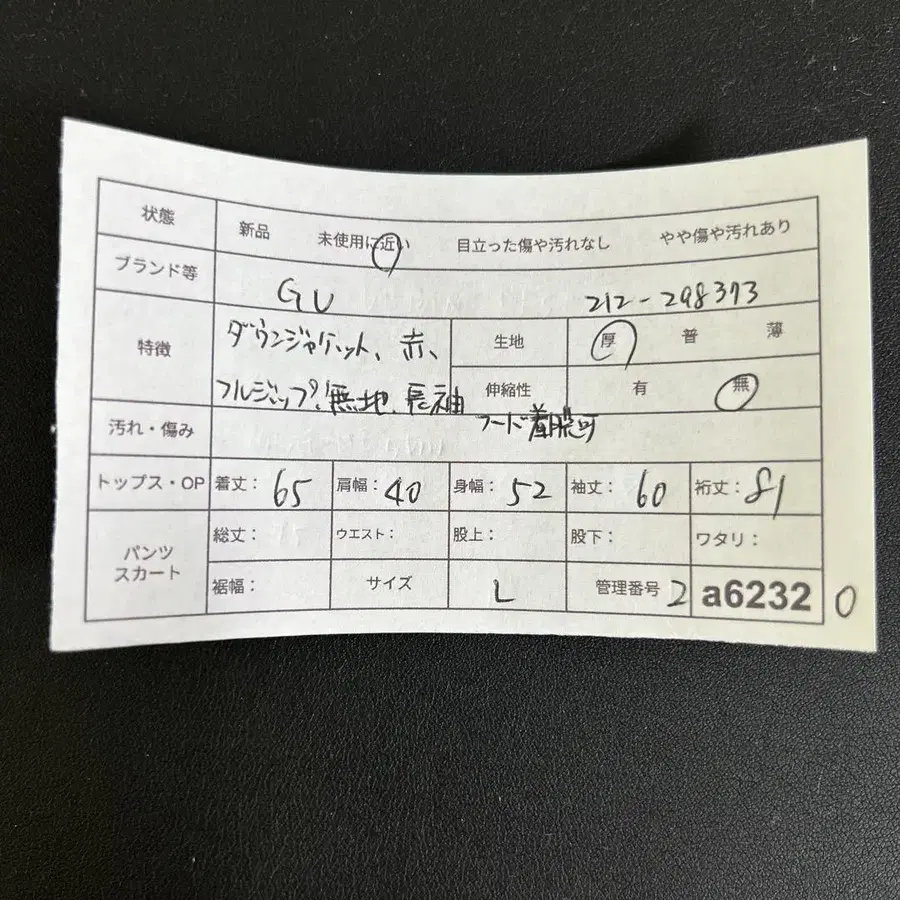 状態 新品 未使用に近い 目立った傷や汚れなし やや傷や汚れあり
ブランド等 GU 212-298373
特徴 ダウンジャケット、赤、 生地 厚 普 薄
フルジップ、無地、長袖 伸縮性 有 無
フード着脱可
汚れ・傷み
トップス・OP 着丈: 65 肩幅: 40 身幅: 52 袖丈: 60 裄丈: 81
パンツ スカート 総丈: ウエスト: 股上: 股下: ワタリ:
裾幅: サイズ L 管理番号 2 a6232 0